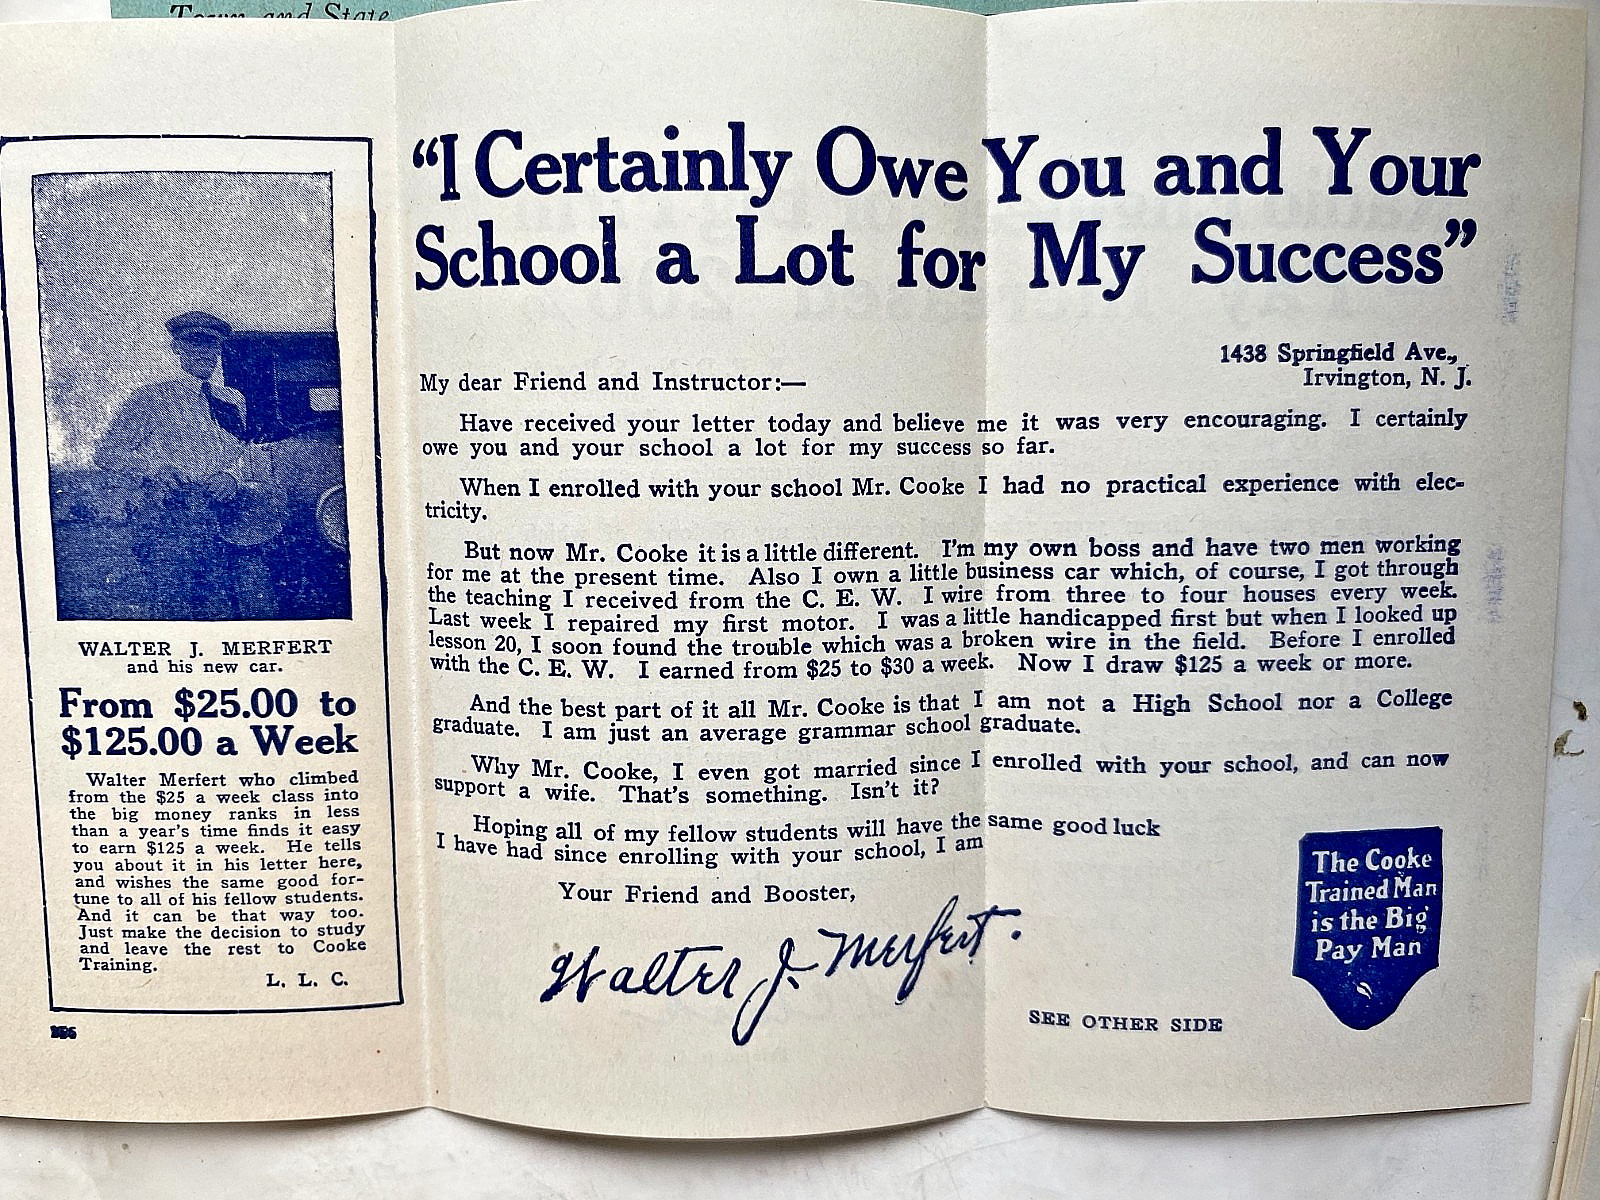 Town and State
"I Certainly Owe You and Your
School a Lot for My Success"
WALTER J. MERFERT
and his new car.
From $25.00 to
$125.00 a Week
Walter Merfert who climbed
from the $25 a week class into
the big money ranks in less
than a year's time finds it easy
to earn $125 a week. He tells
you about it in his letter here,
and wishes the same good for-
tune to all of his fellow students.
And it can be that way too.
Just make the decision to study
and leave the rest to Cooke
Training.
L. L. C.
1438 Springfield Ave.,
Irvington, N. J.
My dear Friend and Instructor:—
Have received your letter today and believe me it was very encouraging. I certainly
owe you and your school a lot for my success so far.
When I enrolled with your school Mr. Cooke I had no practical experience with elec-
tricity.
But now Mr. Cooke it is a little different. I'm my own boss and have two men working
for me at the present time. Also I own a little business car which, of course, I got through
the teaching I received from the C. E. W. I wire from three to four houses every week.
Last week I repaired my first motor. I was a little handicapped first but when I looked up
lesson 20, I soon found the trouble which was a broken wire in the field. Before I enrolled
with the C. E. W. I earned from $25 to $30 a week. Now I draw $125 a week or more.
And the best part of it all Mr. Cooke is that I am not a High School nor a College
graduate. I am just an average grammar school graduate.
Why Mr. Cooke, I even got married since I enrolled with your school, and can now
support a wife. That's something. Isn't it?
Hoping all of my fellow students will have the same good luck
I have had since enrolling with your school, I am
Your Friend and Booster,
Walter J. Merfert.
SEE OTHER SIDE
The Cooke
Trained Man
is the Big
Pay Man